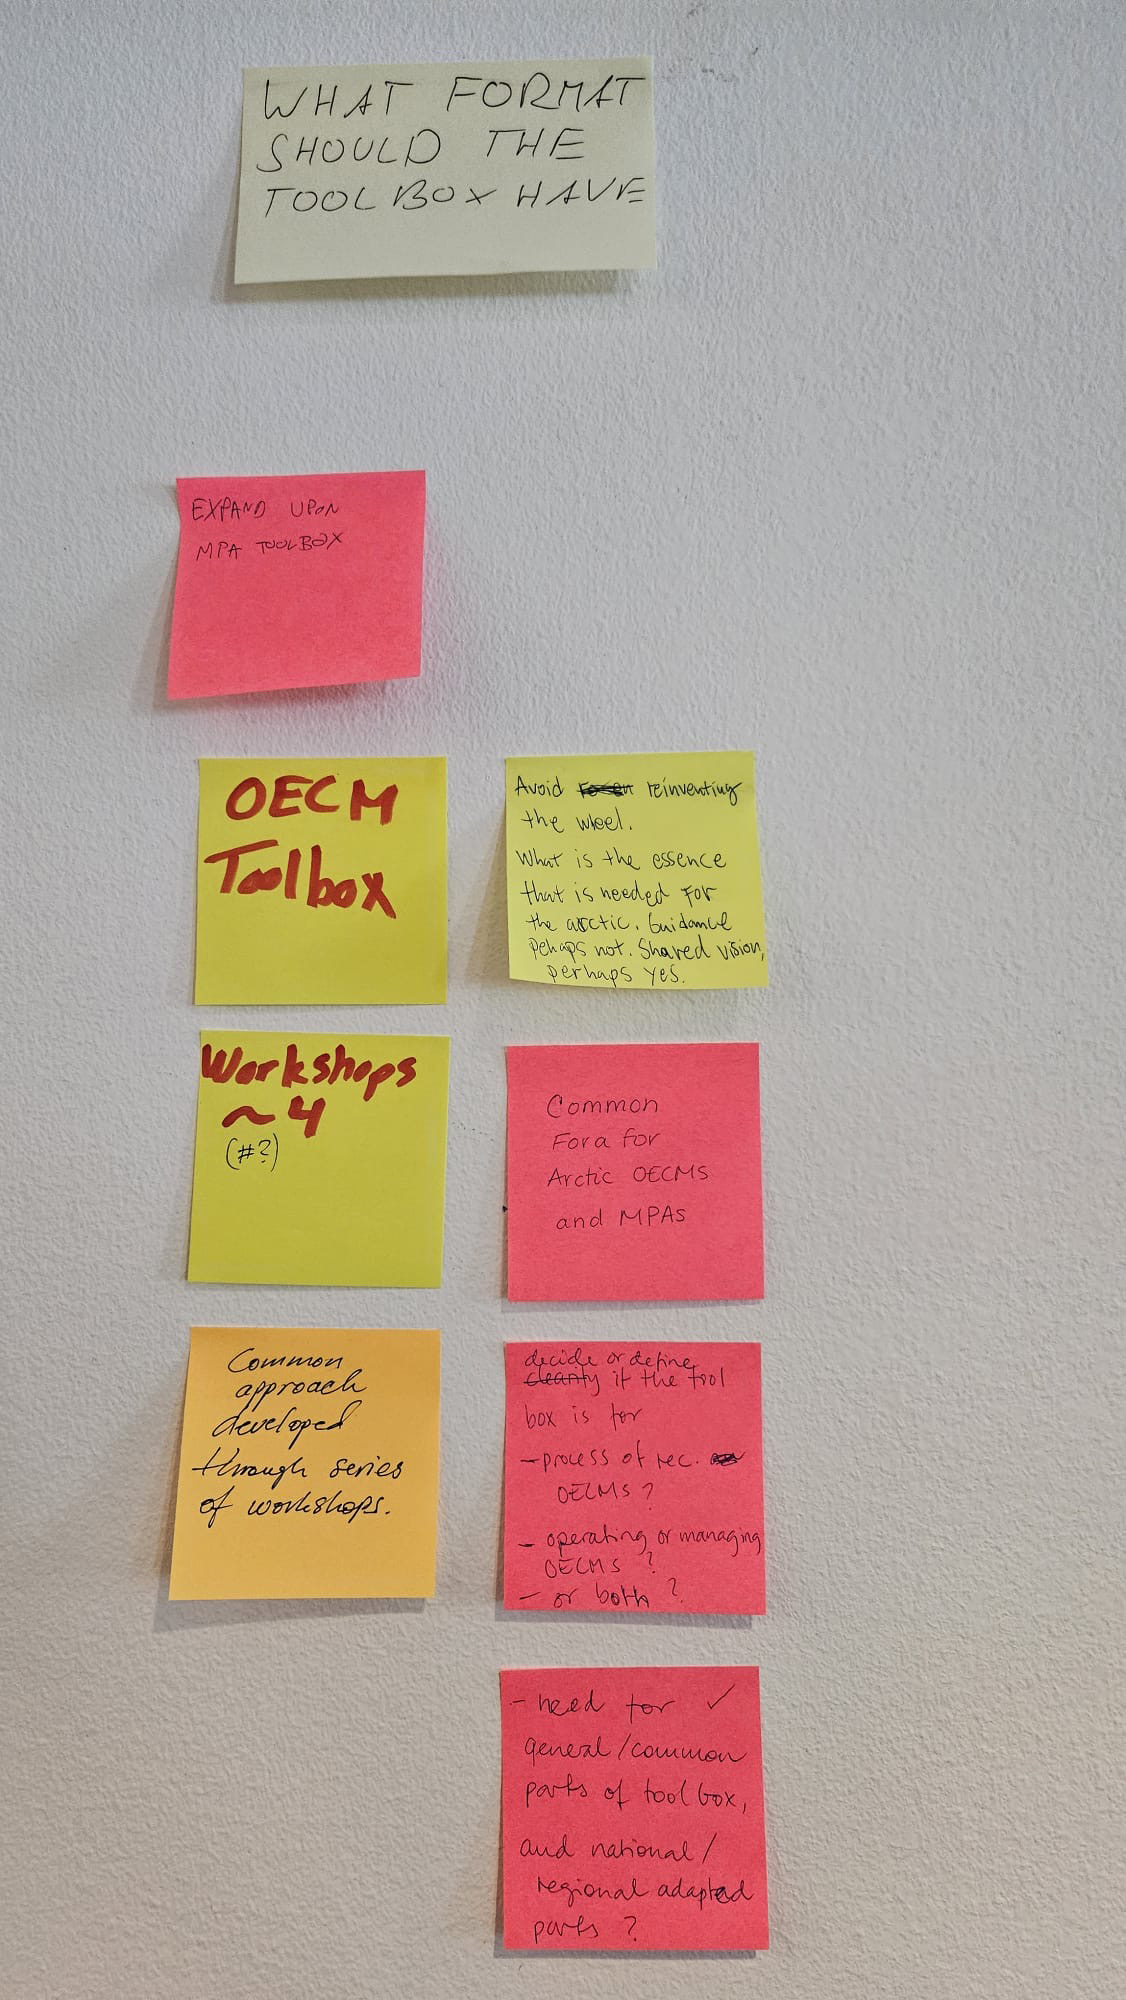 WHAT FORMAT
SHOULD THE
TOOLBOX HAVE
EXPAND UPON
MPA TOOLBOX
OECM
Toolbox
Avoid reinventing
the wheel.
What is the essence
that is needed for
the arctic. Guidance
pehaps not. Shared vision,
perhaps yes.
Workshops
~4
(#?)
Common
Fora for
Arctic OECMs
and MPAs
Common
approach
developed
through series
of workshops.
decide or define
clearify if the tool
box is for
- process of rec.
OECMs?
- operating or managing
OECMs?
- or both?
- need for ✓
general/common
parts of toolbox,
and national/
regional adapted
parts?